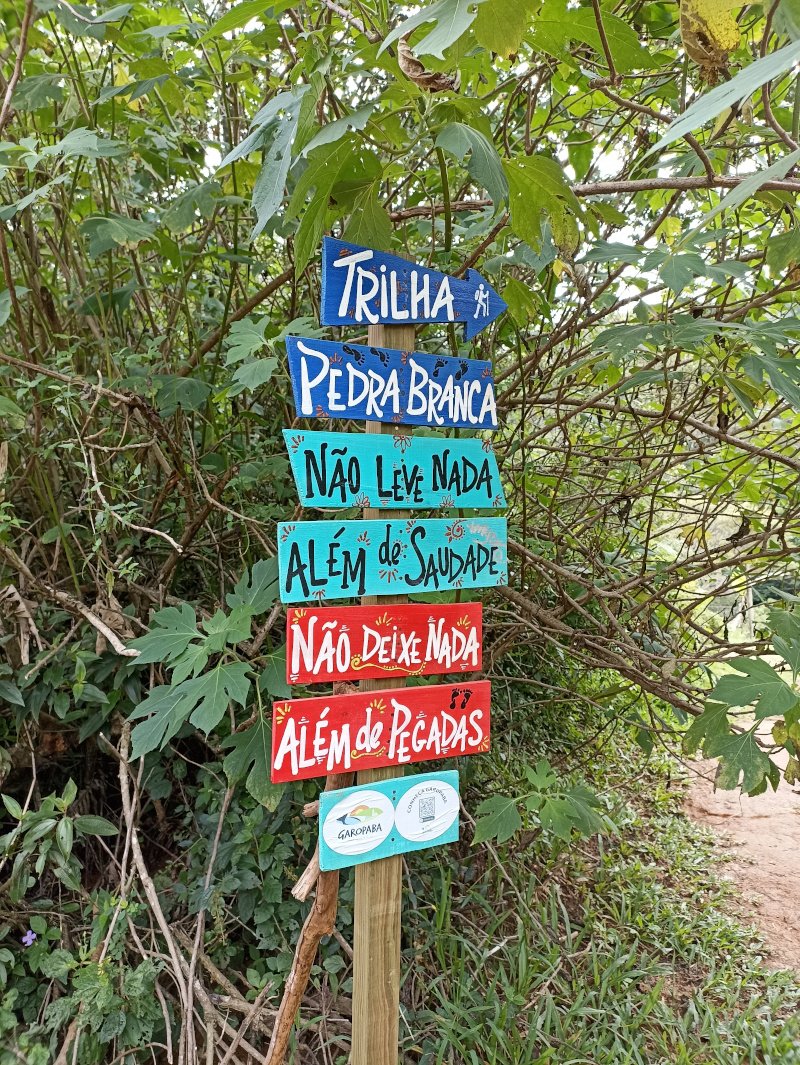 TRILHA
PEDRA BRANCA
NÃO LEVE NADA
ALÉM de SAUDADE
NÃO DEIXE NADA
ALÉM de PEGADAS
GAROPABA
CONHEÇA GAROPABA